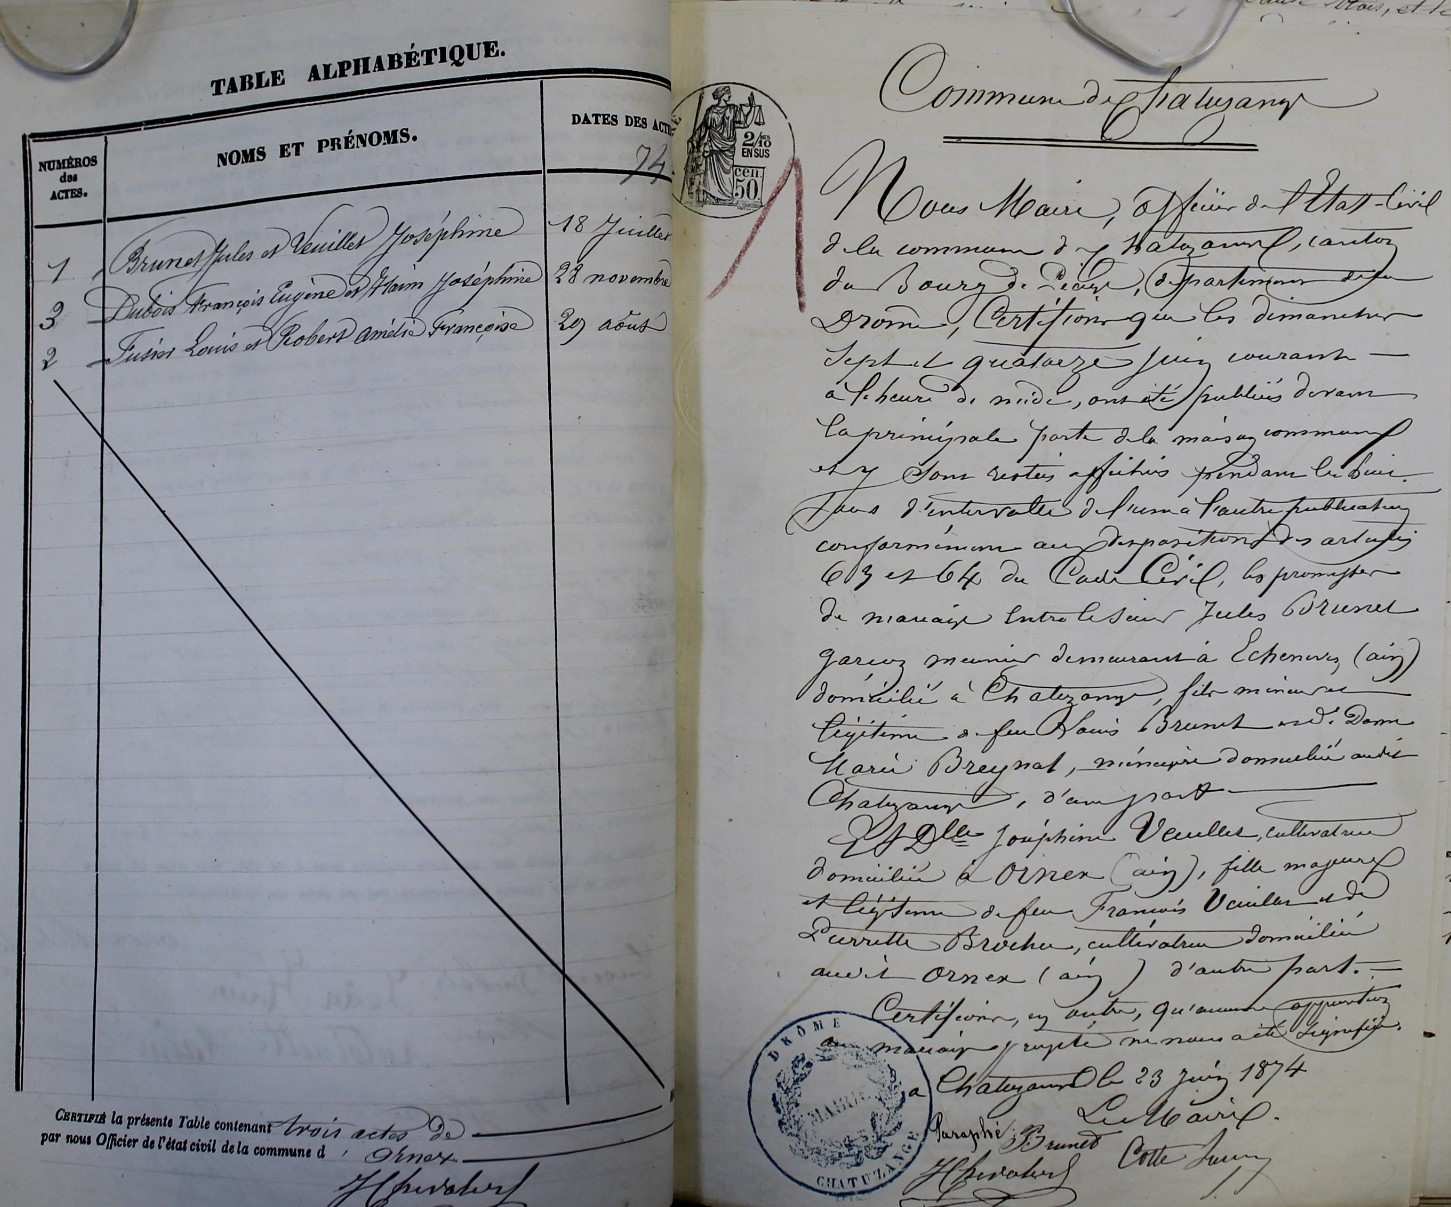 TABLE ALPHABÉTIQUE.
NUMÉROS
des
ACTES.
NOMS ET PRÉNOMS.
DATES DES ACTE
74
1 Brunet Jules et Veuillet Joséphine 18 Juillet
3 Dubois François Eugène et Joséphine 28 novembre
2 Fusier Louis et Robert Amélie Françoise 29 août
CERTIFIÉ la présente Table contenant trois actes de
par nous Officier de l'état civil de la commune d'Ornex
2/10 ES
EN SUS
cen.
50
Commune de Chatuzange
Nous Maire, officier de l'Etat-Civil
de la commune de Chatuzange, canton
du Bourg de Péage, département de la
Drome, Certifions que les dimanches
Sept et quatorze juin courant
à l'heure de midi, ont été publiés devant
la principale porte de la maison commune
et y sont restées affichées pendant les huit
jours d'intervalle de l'une à l'autre publication
conformément aux dispositions des articles
63 et 64 du Code Civil, les promesses
de mariage Entre le Sieur Jules Brunet
garçon meunier demeurant à Echenevex (ain)
domicilié à Chatuzange, fils mineur et
légitime de feu Brunet et de Dame
Marie Breynat, ménagère domiciliée audit
Chatuzange, d'une part
Et Dlle Joséphine Veuillet, cultivatrice
domiciliée à Ornex (ain), fille majeure
et légitime de feu François Veuillet et de
Pierrette Brochu, cultivatrice domiciliée
audit Ornex (ain) d'autre part.
Certifions, en outre, qu'aucune opposition
au mariage projeté ne nous a été signifiée.
a Chatuzange le 23 juin 1874
Le Maire.
Paraphé: J Brunet
DRÔME
MAIRIE
CHATUZANGE